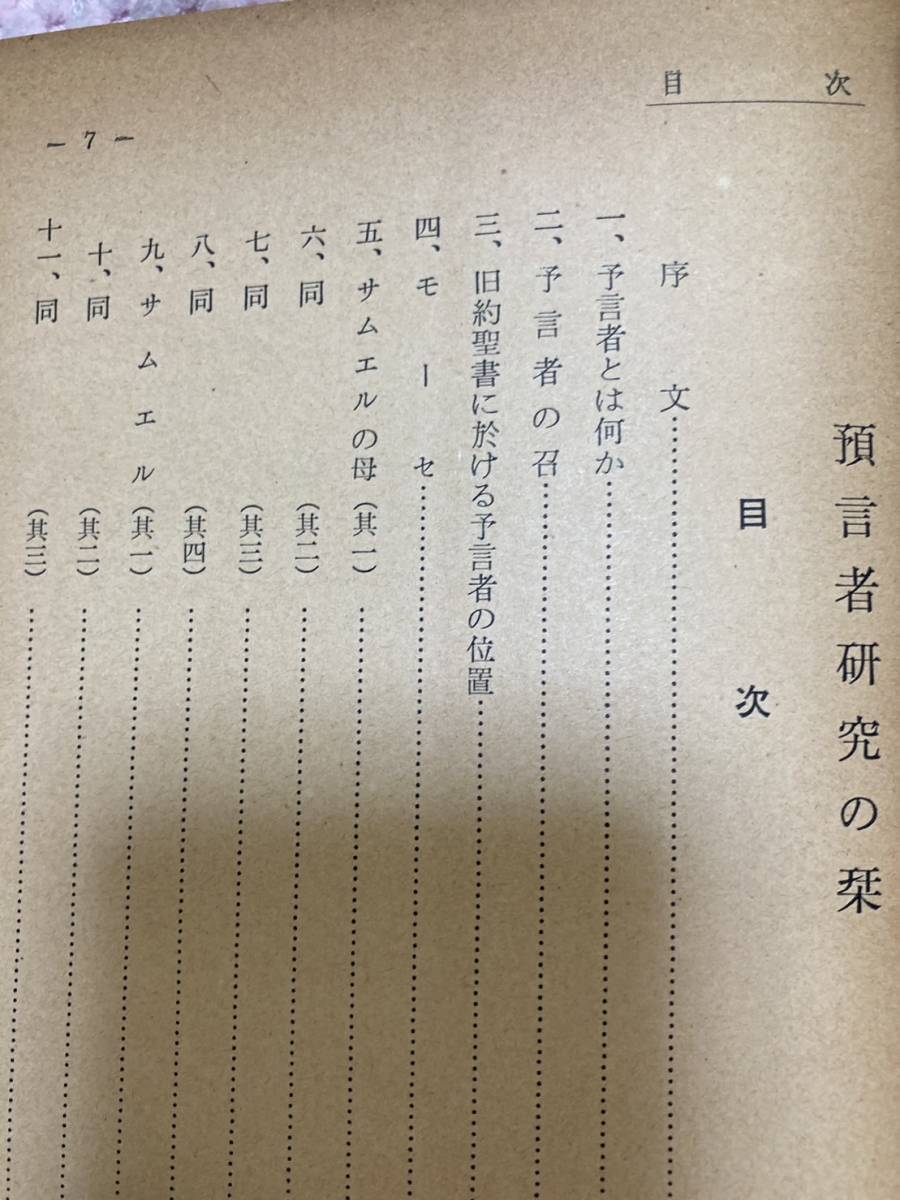 目次
預言者研究の栞
目次
序文……
一、予言者とは何か……
二、予言者の召……
三、旧約聖書に於ける予言者の位置……
四、モーセ……
五、サムエルの母(其一)……
六、同(其二)……
七、同(其三)……
八、同(其四)……
九、サムエル(其一)……
十、同(其二)……
十一、同(其三)……
— 7 —